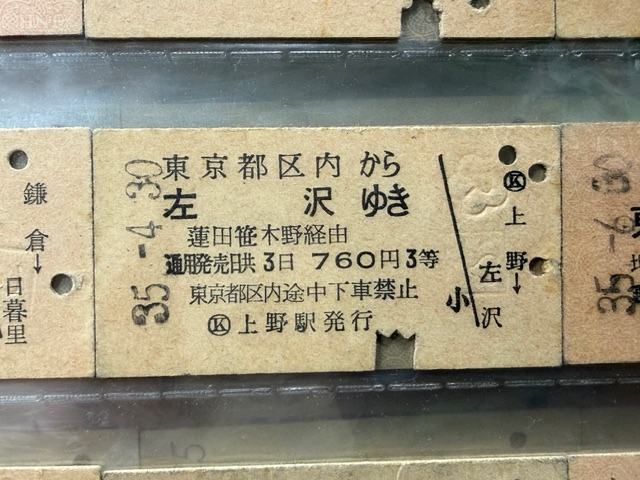 東京都区内から
左沢ゆき
蓮田笹木野経由
通用発売日共3日 760円3等
東京都区内途中下車禁止
Ⓚ上野駅発行
35.-4.30
小
Ⓚ上野→左沢
鎌倉→
日暮里
35.-6.30
東